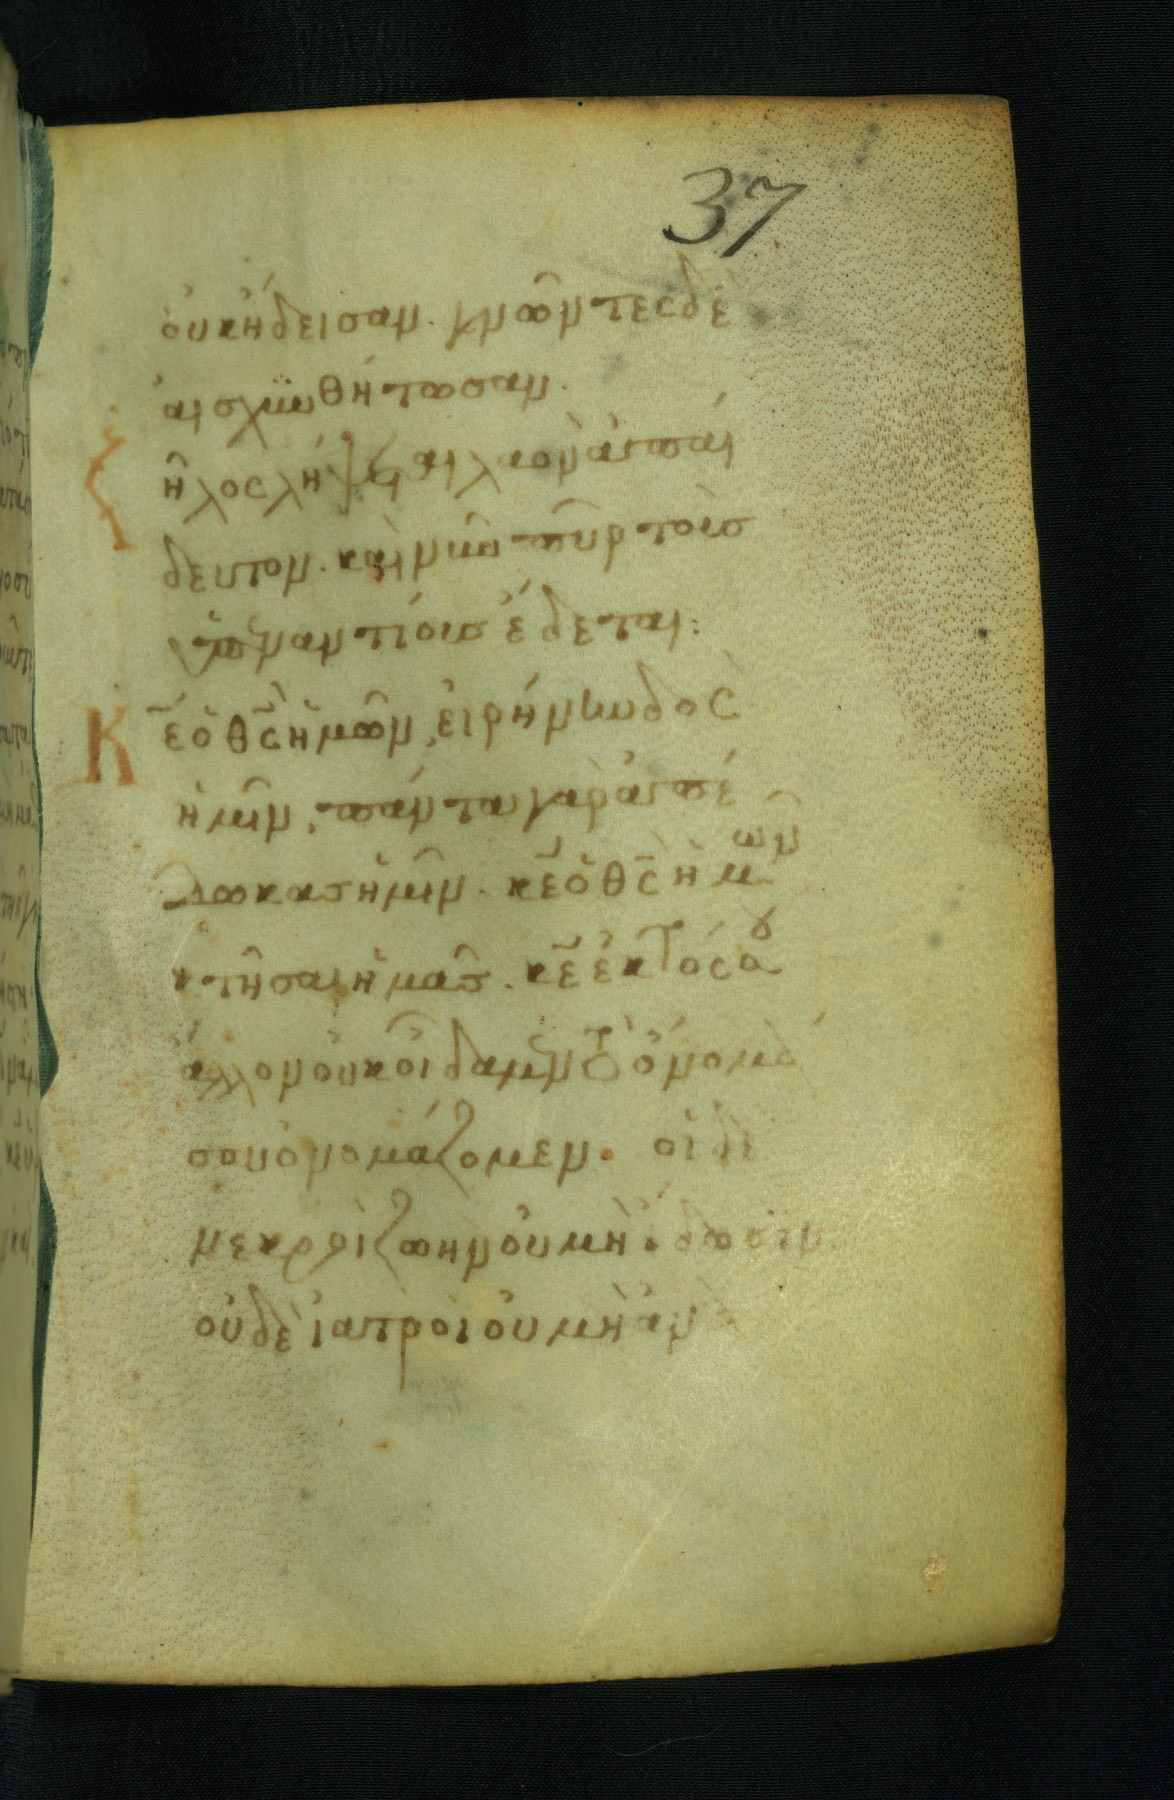 37
οὐκ ἤδεισαν. γνῶντες δὲ
αἰσχυνθήτωσαν.
ζῆλος λήψεται λαὸν ἀπαί
δευτον. καὶ νῦν πῦρ τοὺσ
ὑπεναντίους ἔδεται:
Κ̅ε̅ ὁ θ̅ς̅ ἡμῶν, εἰρήνην δὸς
ἡμῖν, πάντα γὰρ ἀπέ
δωκας ἡμῖν. κ̅ε̅ ὁ θ̅ς̅ ἡμῶν
κτῆσαι ἡμᾶς. κ̅ε̅ ἐκτός σου
ἄλλον οὐκ οἴδαμεν τὸ ὄνομά
σου ὀνομάζομεν. οἱ δὲ
νεκροὶ ζωὴν οὐ μὴ ἴδωσιν
οὐδὲ ἰατροὶ οὐ μὴ ἀν